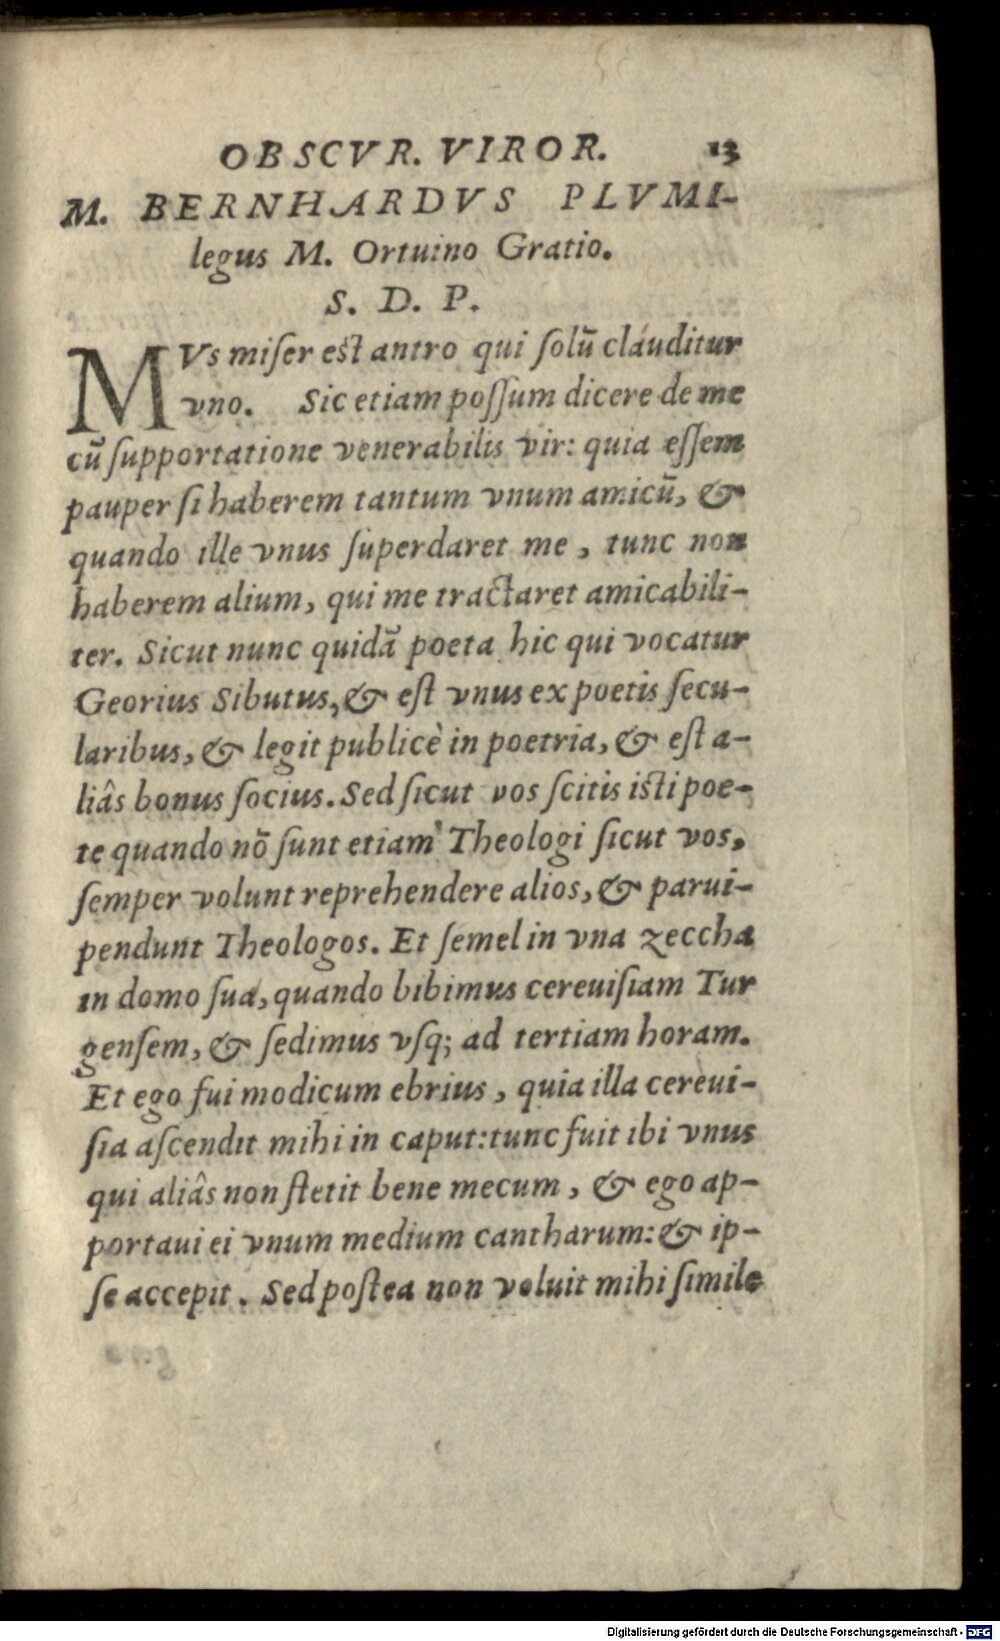 OBSCVR. VIROR. 13
M. BERNHARDVS PLVMI-
legus M. Ortuino Gratio.
S. D. P.
MVs miſer est antro qui ſolũ clauditur
vno. Sic etiam poſſum dicere de me
cũ ſupportatione venerabilis vir: quia eſſem
pauper ſi haberem tantum vnum amicũ, &
quando ille vnus ſuperdaret me, tunc non
haberem alium, qui me tractaret amicabili-
ter. Sicut nunc quidã poeta hic qui vocatur
Georius Sibutus, & eſt vnus ex poetis ſecu-
laribus, & legit publicè in poetria, & eſt a-
liâs bonus ſocius. Sed ſicut vos ſcitis isti poe-
te quando nõ ſunt etiam Theologi ſicut vos,
ſemper volunt reprehendere alios, & parui-
pendunt Theologos. Et ſemel in vna zeccha
in domo ſua, quando bibimus cereuiſiam Tur
genſem, & ſedimus vſq; ad tertiam horam.
Et ego fui modicum ebrius, quia illa cereui-
ſia aſcendit mihi in caput: tunc fuit ibi vnus
qui aliâs non ſtetit bene mecum, & ego ap-
portaui ei vnum medium cantharum: & ip-
ſe accepit. Sed poſtea non voluit mihi ſimile
Digitalisierung gefördert durch die Deutsche Forschungsgemeinschaft - DFG